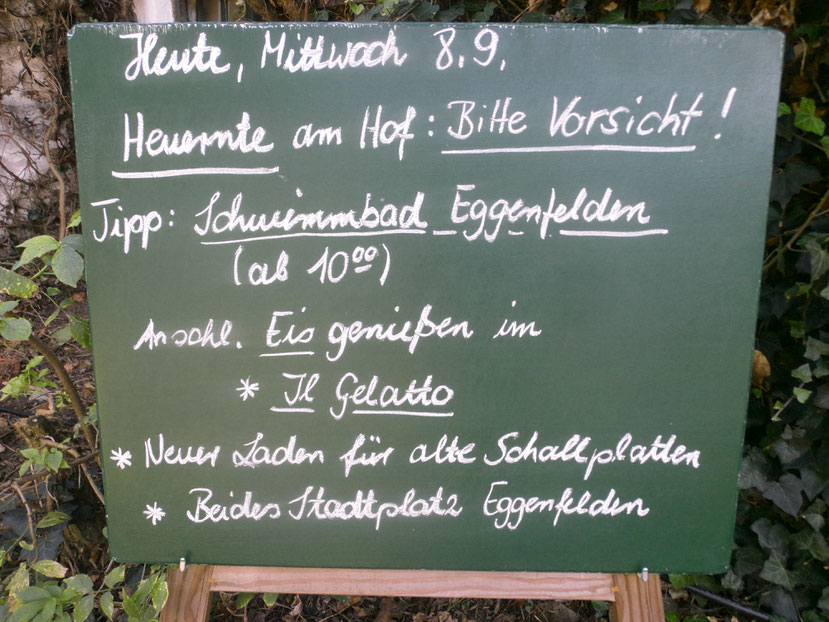 Heute, Mittwoch 8.9.
Heuernte am Hof: Bitte Vorsicht!
Tipp: Schwimmbad Eggenfelden
(ab 10⁰⁰)
Anschl. Eis genießen im
* Il Gelatto
* Neuer Laden für alte Schallplatten
* Beides Stadtplatz Eggenfelden